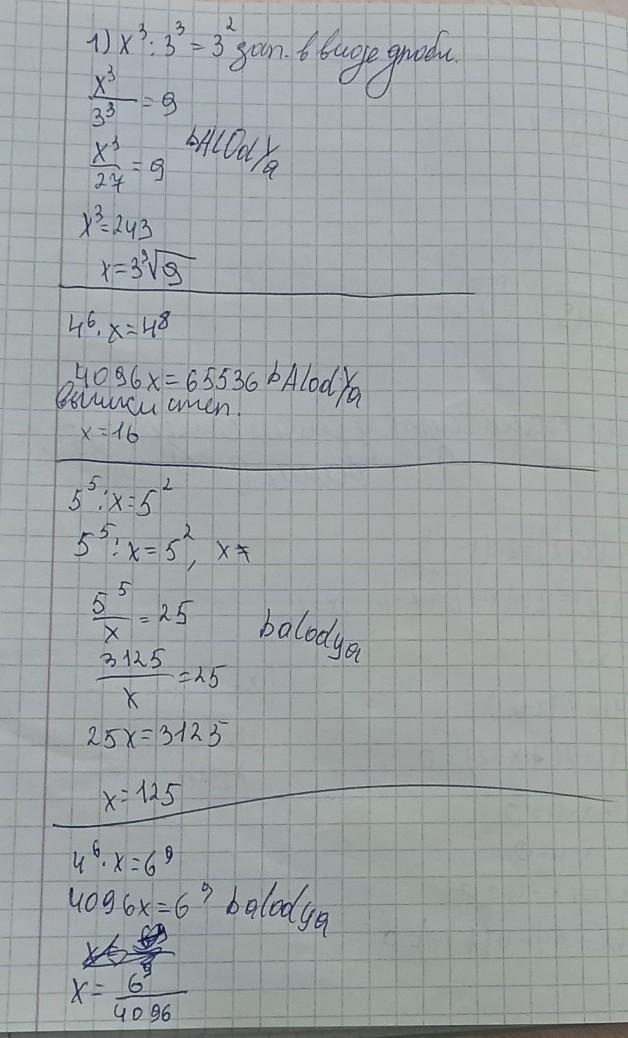 1) x³ : 3³ = 3² зап. в виде дроби.
x³/3³ = 9
bALOdYa
x³/27 = 9
x³ = 243
x = 3³√9
4⁶ · x = 4⁸
4096x = 65536 bAlodYa
степ.
x = 16
5⁵ : x = 5²
5⁵ : x = 5², x≠
5⁵/x = 25
balodya
3125/x = 25
25x = 3125
x = 125
4⁶ · x = 6⁹
4096x = 6⁹ balodya
x = 6⁹/4096